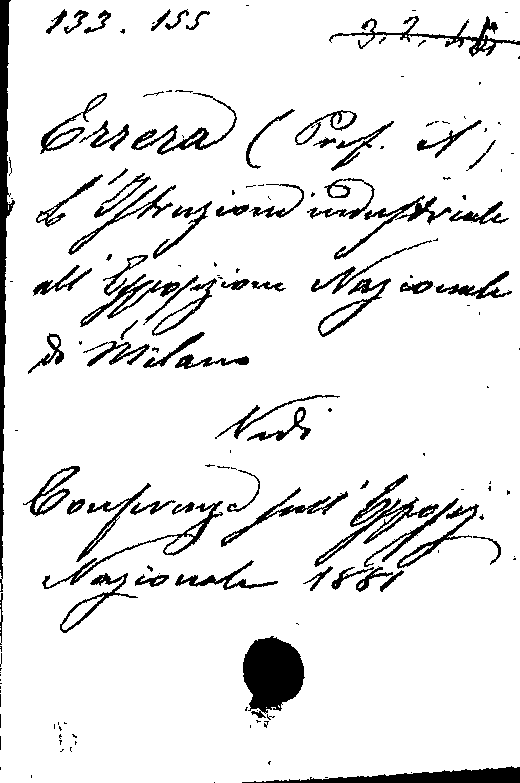 133. 155
3. 2.
Errera (Prof. A)
L'Istruzione industriale
all'Esposizione Nazionale
di Milano
Vedi
Conferenze sull'Esposiz.
Nazionale 1881